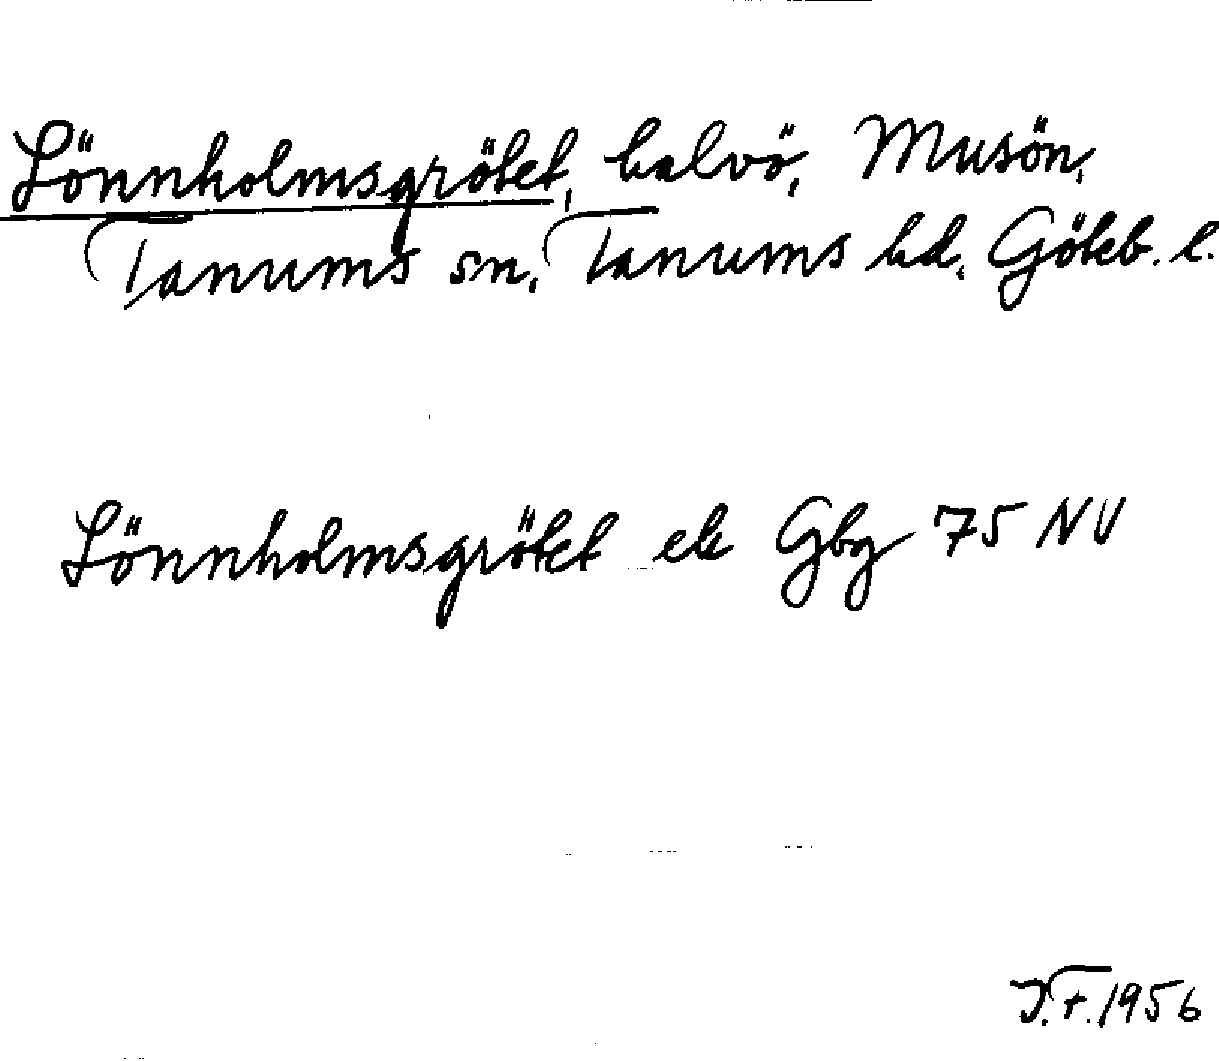 Lönnholmsgrötet, halvö, Musön,
Tanums sn, Tanums hd, Göteb. l.
Lönnholmsgrötet ek Gbg 75 NV
J.F. 1956